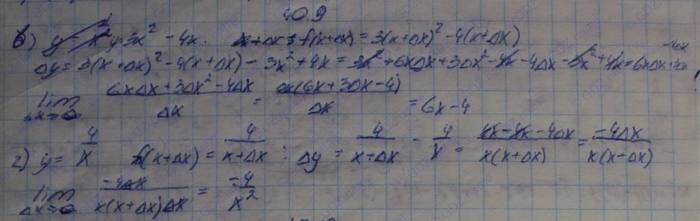 40.9
в) y = 3x² - 4x. f(x+Δx) = 3(x+Δx)² - 4(x+Δx)
Δy = 3(x+Δx)² - 4(x+Δx) - 3x² + 4x = 3x² + 6xΔx + 3Δx² - 4x - 4Δx - 3x² + 4x = 6xΔx + 3Δx² - 4Δx
lim Δx→0 (6xΔx + 3Δx² - 4Δx)/Δx = Δx(6x + 3Δx - 4)/Δx = 6x - 4
г) y = 4/x f(x+Δx) = 4/(x+Δx) ; Δy = 4/(x+Δx) - 4/x = (4x - 4x - 4Δx)/(x(x+Δx)) = -4Δx/(x(x-Δx))
lim Δx→0 -4Δx/(x(x+Δx)Δx) = -4/x²